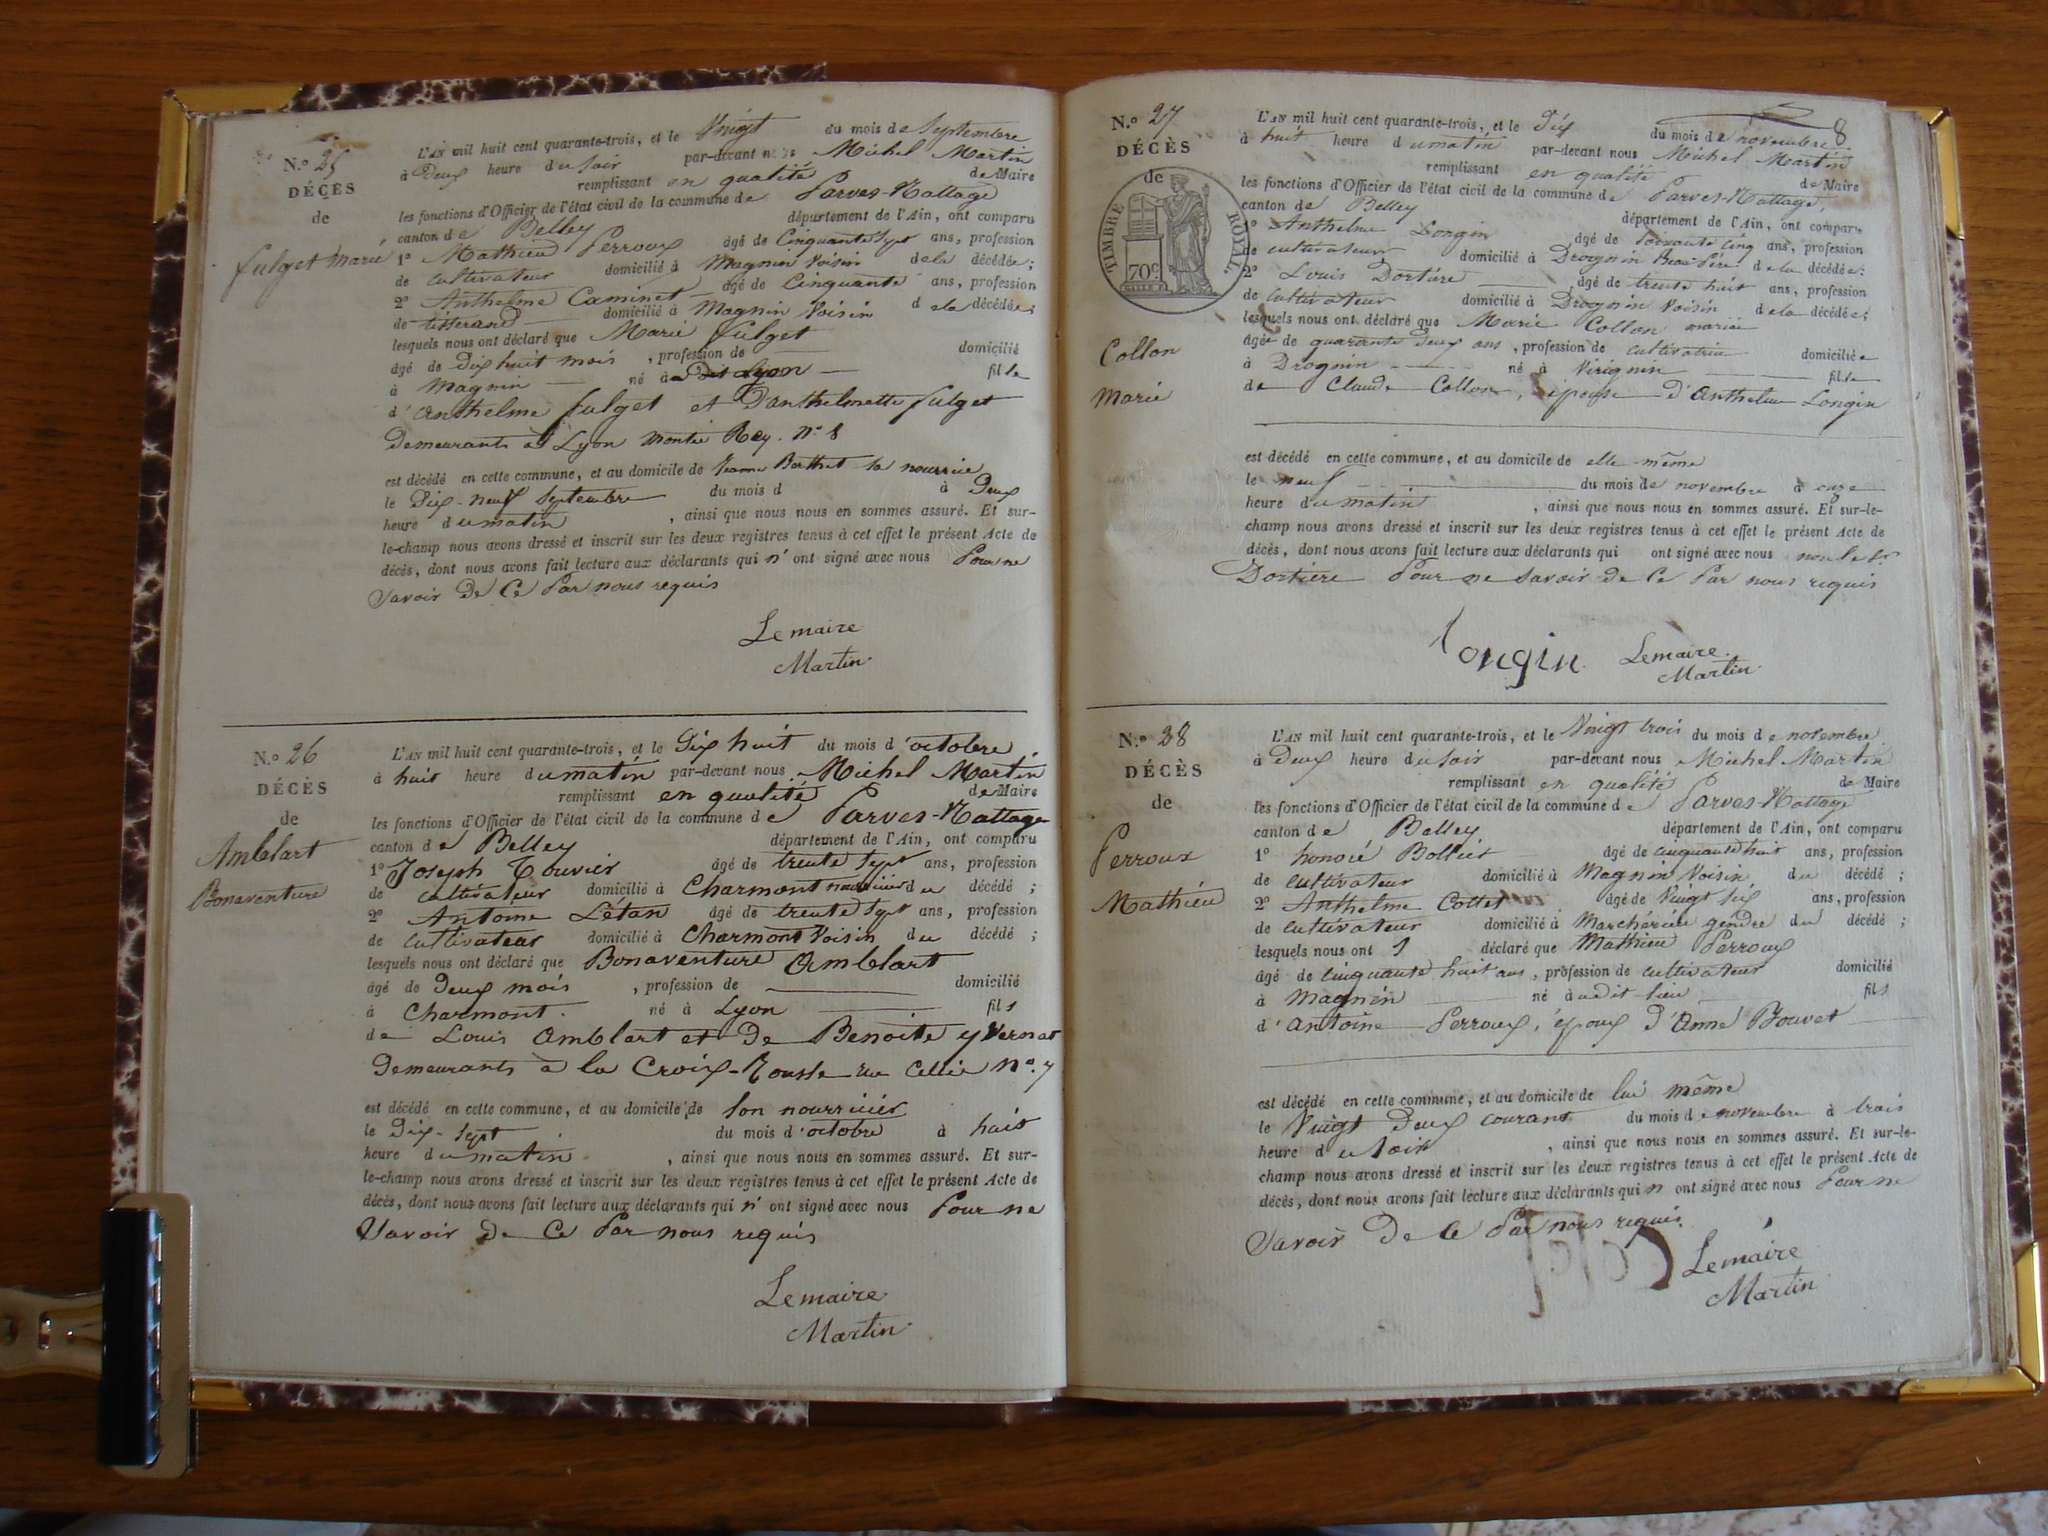 N.º 25
DÉCÈS
de
fulget marie
L'AN mil huit cent quarante-trois, et le Vingt du mois de Septembre
à Deux heure du soir par-devant nous Michel Martin
remplissant en qualité de Maire
les fonctions d'Officier de l'état civil de la commune de Parves-Nattage
canton de Belley département de l'Ain, ont comparu
1º Mathieu Perroux âgé de Cinquante Sept ans, profession
de cultivateur domicilié à Magnin Voisin de la décédée;
2º Anthelme Caminet âgé de Cinquante ans, profession
de tisserand domicilié à Magnin Voisin de la décédée;
lesquels nous ont déclaré que Marie fulget
âgé de Dix huit mois, profession de domicilié
à Magnin né à Lyon fille
d'anthelme fulget et Danthelmette fulget
Demeurants à Lyon Montée Rey. Nº 8
est décédé en cette commune, et au domicile de Jeanne Berthet la nourrice
le Dix-neuf Septembre du mois d à Deux
heure du matin, ainsi que nous nous en sommes assuré. Et sur-
le-champ nous avons dressé et inscrit sur les deux registres tenus à cet effet le présent Acte de
décès, dont nous avons fait lecture aux déclarants qui n'ont signé avec nous Pour ne
Savoir De Ce Par nous requis
Lemaire
Martin
N.º 26
DÉCÈS
de
Amblart
Bonaventure
L'AN mil huit cent quarante-trois, et le Dix huit du mois d'octobre
à huit heure du matin par-devant nous Michel Martin
remplissant en qualité de Maire
les fonctions d'Officier de l'état civil de la commune de Parves-Nattage
canton de Belley département de l'Ain, ont comparu
1º Joseph Touvier âgé de trente Sept ans, profession
de cultivateur domicilié à Charmont nourricier du décédé;
2º Antoine Létan âgé de trente Sept ans, profession
de cultivateur domicilié à Charmont Voisin du décédé;
lesquels nous ont déclaré que Bonaventure Amblart
âgé de Deux mois, profession de domicilié
à Charmont né à Lyon fils
de Louis Amblart et De Benoite yvernat
Demeurants à la Croix-Rousse rue Nº 7
est décédé en cette commune, et au domicile de Son nourricier
le Dix-Sept du mois d'octobre à huit
heure du matin, ainsi que nous nous en sommes assuré. Et sur-
le-champ nous avons dressé et inscrit sur les deux registres tenus à cet effet le présent Acte de
décès, dont nous avons fait lecture aux déclarants qui n'ont signé avec nous Pour ne
Savoir De Ce Par nous requis
Lemaire
Martin
8
N.º 27
DÉCÈS
de
TIMBRE ROYAL
70 C.
Collon
Marie
L'AN mil huit cent quarante-trois, et le Dix du mois de novembre
à huit heure du matin par-devant nous Michel Martin
remplissant en qualité de Maire
les fonctions d'Officier de l'état civil de la commune de Parves-Nattage,
canton de Belley département de l'Ain, ont comparu
1º Anthelme Longin âgé de Soixante Cinq ans, profession
de cultivateur domicilié à Drognin beau Père de la décédée;
2º Louis Dortière âgé de trente huit ans, profession
de Cultivateur domicilié à Drognin Voisin de la décédée;
lesquels nous ont déclaré que Marie Collon mariée
âgée de quarante Deux ans, profession de cultivatrice domiciliée
à Drognin né à Virignin fille
de Claude Collon, épouse d'Anthelme Longin
est décédé en cette commune, et au domicile de elle-même
le neuf du mois de novembre à onze
heure du matin, ainsi que nous nous en sommes assuré. Et sur-le-
champ nous avons dressé et inscrit sur les deux registres tenus à cet effet le présent Acte de
décès, dont nous avons fait lecture aux déclarants qui ont signé avec nous non le Sr
Dortiere Pour ne Savoir de Ce Par nous requis
Longin Lemaire
Martin
N.º 28
DÉCÈS
de
Perroux
Mathieu
L'AN mil huit cent quarante-trois, et le Vingt trois du mois de novembre
à Deux heure du Soir par-devant nous Michel Martin
remplissant en qualité de Maire
les fonctions d'Officier de l'état civil de la commune de Parves-Nattage
canton de Belley département de l'Ain, ont comparu
1º honoré Bolliet âgé de cinquante huit ans, profession
de cultivateur domicilié à Magnin Voisin du décédé;
2º Anthelme Cottet âgé de Vingt Six ans, profession
de cultivateur domicilié à gendre du décédé;
lesquels nous ont déclaré que Mathieu Perroux
âgé de cinquante huit ans, profession de cultivateur domicilié
à Magnin né audit-lieu fils
d'Antoine Perroux, époux d'Anne Bouvet
est décédé en cette commune, et au domicile de lui même
le Vingt Deux courant du mois de novembre à trois
heure du Soir, ainsi que nous nous en sommes assuré. Et sur-le-
champ nous avons dressé et inscrit sur les deux registres tenus à cet effet le présent Acte de
décès, dont nous avons fait lecture aux déclarants qui n ont signé avec nous Pour ne
Savoir De Ce Par nous requis
Lemaire
Martin